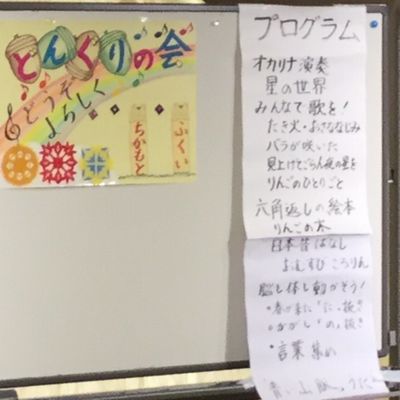 どんぐりの会
どうぞ
よろしく
ふくい
ちかもと
プログラム
オカリナ演奏
星の世界
みんなで歌を!
たき火・おさななじみ
バラが咲いた
見上げてごらん夜の星を
りんごのひとりごと
六角返しの絵本
りんごの木
日本昔ばなし
おむすびころりん
脳と体と動かそう!
言葉集め